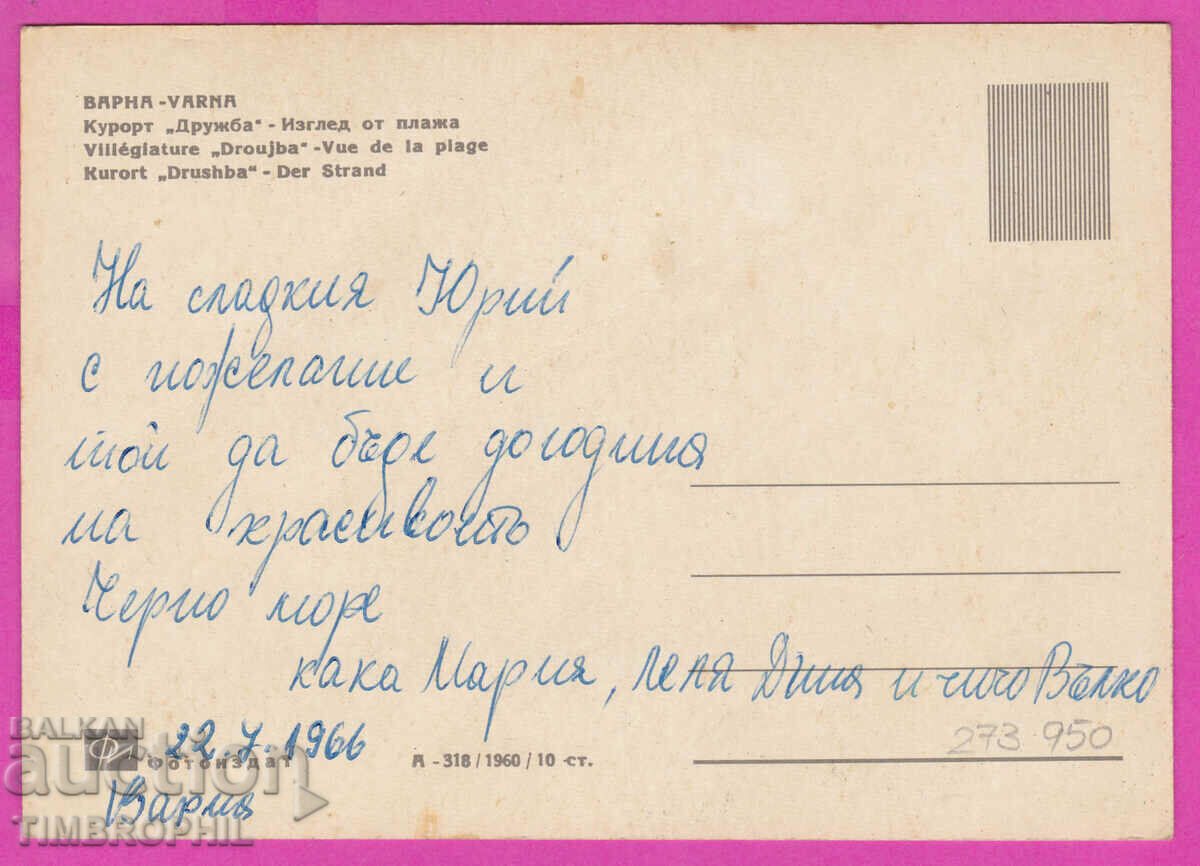 ВАРНА - VARNA
Курорт „Дружба“ - Изглед от плажа
Villégiature „Droujba“ - Vue de la plage
Kurort „Drushba“ - Der Strand
На сладкия Юрий
с пожелание и
той да бъде догодина
на красивото
Черно море
кака Мария, леля Дина и чичо Вълко
22.7.1966
Варна
Фотоиздат
А - 318 / 1960 / 10 ст.
273 950
BALKAN
auction
TIMBROPHIL